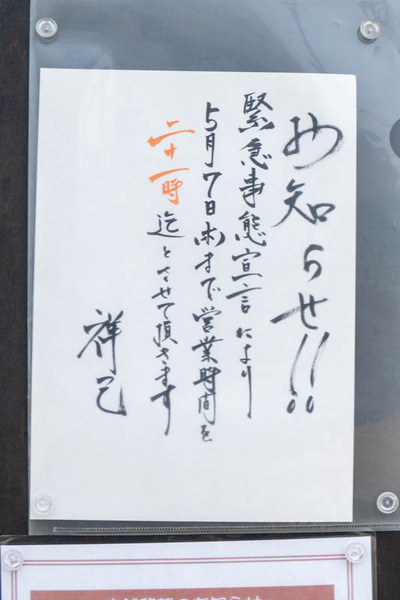 お知らせ!!
緊急事態宣言により
5月7日(木)まで営業時間を
二十一時迄とさせて頂きます
祥己